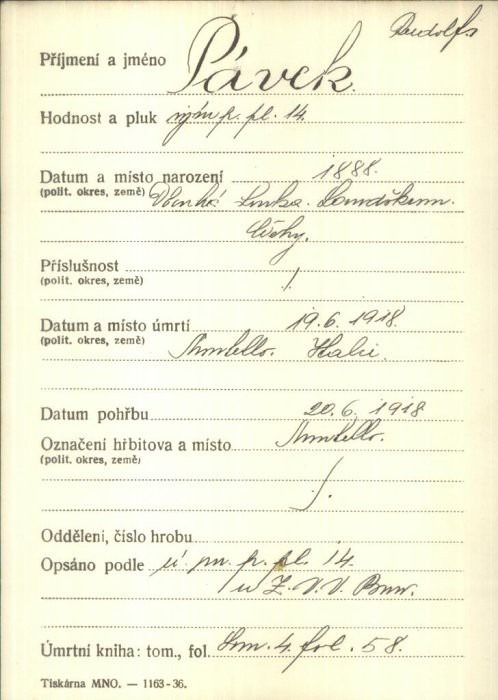 Rudolf
Příjmení a jméno Pávek.
Hodnost a pluk p. pl. 14.
Datum a místo narození 1888.
(polit. okres, země) Landškrun.
Čechy.
Příslušnost /.
(polit. okres, země)
Datum a místo úmrtí 19. 6. 1918.
(polit. okres, země) Montello. Italie.
Datum pohřbu 20. 6. 1918
Označení hřbitova a místo Montello.
(polit. okres, země)
/.
Oddělení, číslo hrobu
Opsáno podle p. pl. 14.
u Z. V. V. Brno.
Úmrtní kniha: tom., fol. tom. 4. fol. 58.
Tiskárna MNO. — 1163-36.